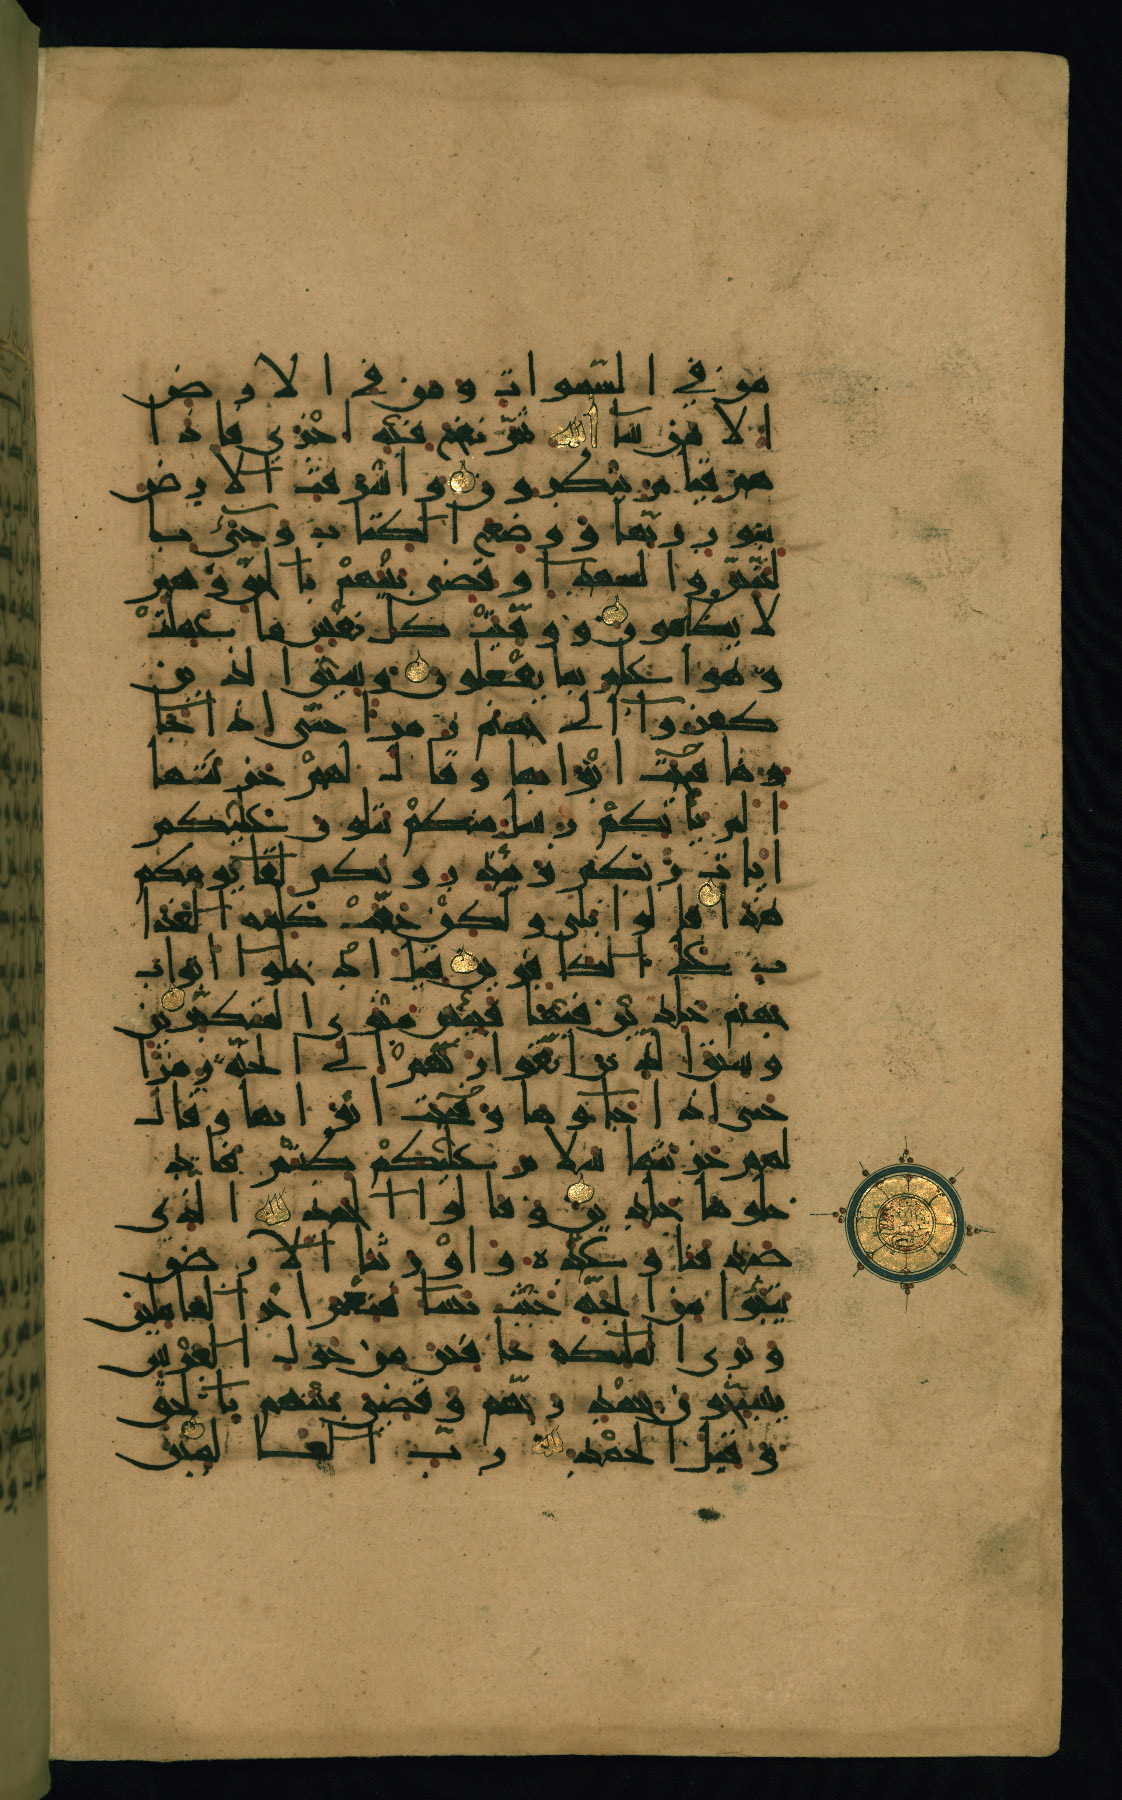 من في السموات و من في الار ض
الا من شا الله ثم نفخ فيه اخرى فاذا
هم قيام ينظرو ن و اشرقت الار ض
بنور ربها و وضع الكتاب و جىء با
لنبين و الشهدا و قضى بينهم با لحق و هم
لا يظلمون و وفيت كل نفس ما عملت
و هو اعلم بما يفعلون و سيق الذ ين
كفروا الى جهنم زمرا حتى اذ ا جا
و ها فتحت ابوابها و قا ل لهم خز نتها
الم يا تكم رسل منكم يتلو ن عليكم
ايا ت ر بكم و ينذ رو نكم لقا يو مكم
هذا قا لوا بلى و لكن حقت كلمه العذا
ب على الكا فر ين قيل اد خلوا ابواب
جهنم خالد ين فيها فبئس مثوى المتكبر ين
و سيق الذ ين اتقوا ربهم الى الجنة زمرا
حتى اذ ا جا و ها و فتحت ابو ابها و قال
لهم خز نتها سلا م عليكم طبتم فا د
خلو ها خالد ين و قا لوا الحمد لله الذى
صد قنا و عد ه و او ر ثنا الار ض
نتبوا من الجنة حيث نشا فنعم اجر العا ملين
و ترى الملئكة حا فين من حول العرش
يسبحون بحمد ر بهم و قضى بينهم با لحق
و قيل الحمد لله ر ب العا لمين